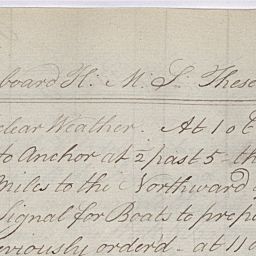 board H: M: S: These
clear Weather. At 1 o C
to Anchor at ½ past 5 - th
Miles to the Northward
Signal for Boats to prep
eviously orderd - at 11 o